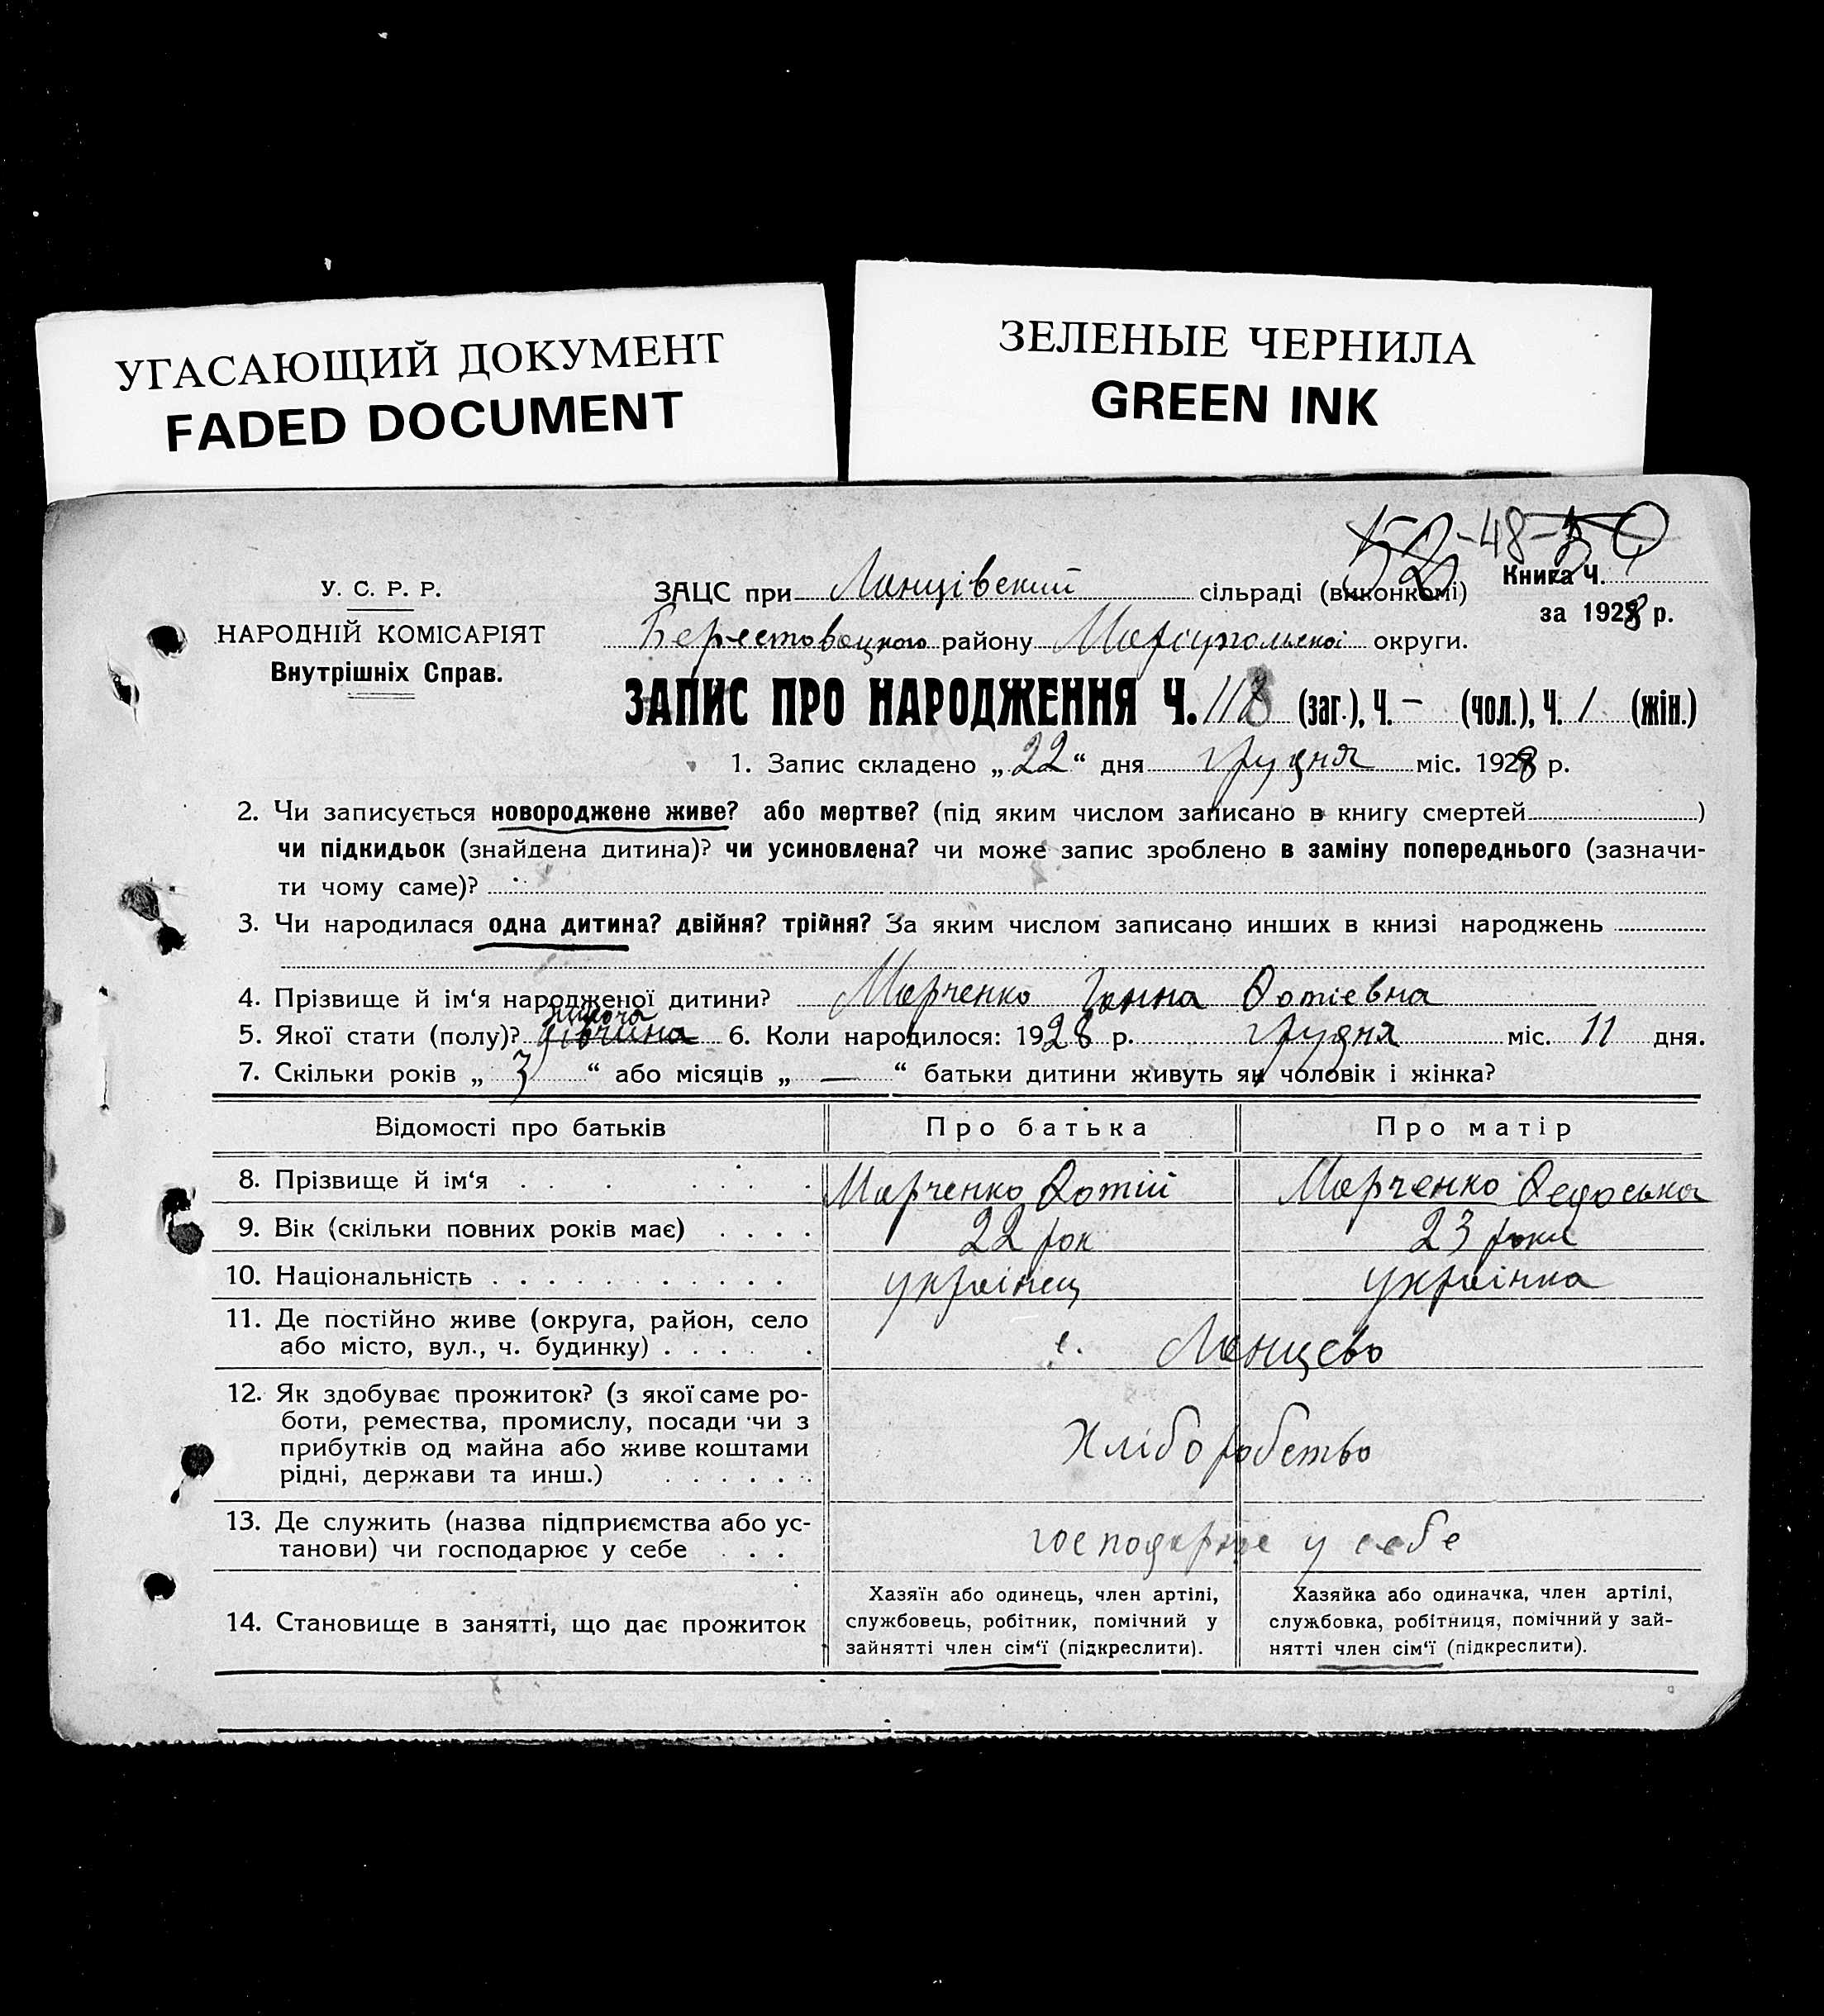 УГАСАЮЩИЙ ДОКУМЕНТ
FADED DOCUMENT
ЗЕЛЕНЫЕ ЧЕРНИЛА
GREEN INK
48
У. С. Р. Р.
НАРОДНІЙ КОМІСАРІЯТ
Внутрішніх Справ.
ЗАЦС при Ланцівский сільраді (виконкомі)
Книга Ч.
за 1928 р.
Берестовецкого району Маріупольскоі округи.
ЗАПИС ПРО НАРОДЖЕННЯ Ч. 118 (заг.), Ч. – (чол.), Ч. 1 (жін.)
1. Запис складено „22“ дня грудня міс. 1928 р.
2. Чи записується новороджене живе? або мертве? (під яким числом записано в книгу смертей )
чи підкидьок (знайдена дитина)? чи усиновлена? чи може запис зроблено в заміну попереднього (зазначи-
ти чому саме)?
3. Чи народилася одна дитина? двійня? трійня? За яким числом записано инших в книзі народжень
4. Прізвище й ім‘я народженої дитини? Марченко Ганна Фотіевна
жіноча
5. Якої стати (полу)? дівчина 6. Коли народилося: 1928 р. грудня міс. 11 дня.
7. Скільки років „ 3 “ або місяців „ — “ батьки дитини живуть як чоловік і жінка?
Відомості про батьків Про батька Про матір
8. Прізвище й ім‘я Марченко Фотій Марченко Федоська
9. Вік (скільки повних років має) 22 рок 23 роки
10. Національність украінец украінка
11. Де постійно живе (округа, район, село
або місто, вул., ч. будинку) с. Ланцево
12. Як здобуває прожиток? (з якої саме ро-
боти, ремества, промислу, посади чи з
прибутків од майна або живе коштами
рідні, держави та инш.) Хліборобство
13. Де служить (назва підприємства або ус-
танови) чи господарює у себе господарює у себе
14. Становище в занятті, що дає прожиток
Хазяїн або одинець, член артілі,
службовець, робітник, помічний у
зайнятті член сім‘ї (підкреслити).
Хазяйка або одиначка, член артілі,
службовка, робітниця, помічний у зай-
нятті член сім‘ї (підкреслити).